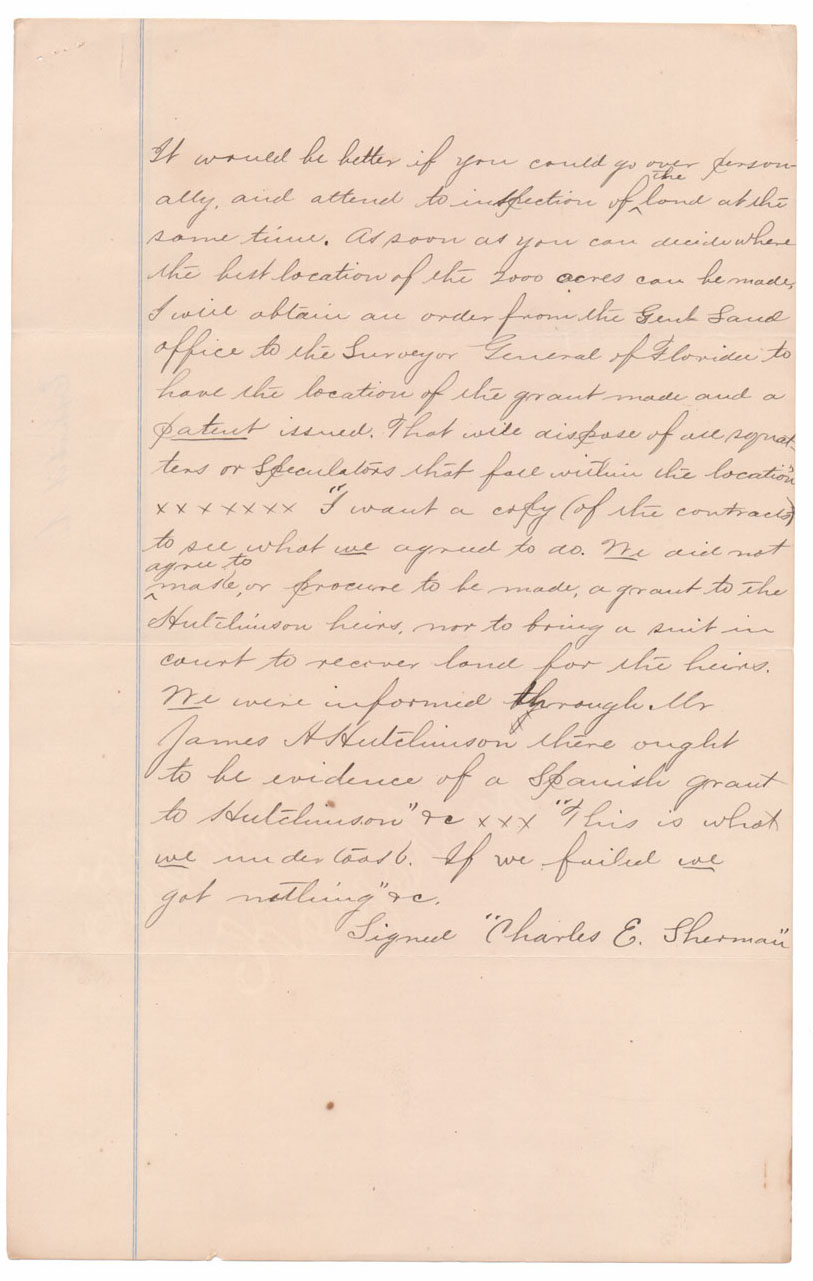 It would be better if you could go over person-
ally, and attend to inspection of the land at the
same time. As soon as you can decide where
the best location of the 2000 acres can be made,
I will obtain an order from the Genl Land
office to the Surveyor General of Florida to
have the location of the grant made and a
patent issued. That will dispose of all squat-
ters or Speculators that fall within the location"
x x x x x x x "I want a copy (of the contracts)
to see what we agreed to do. We did not
agree to
make, or procure to be made, a grant to the
Hutchinson heirs, nor to bring a suit in
court to recover land for the heirs.
We were informed through Mr
James A Hutchinson there ought
to be evidence of a Spanish grant
to Hutchinson" &c x x x "This is what
we understood. If we failed we
got nothing" &c.
Signed "Charles E. Sherman"